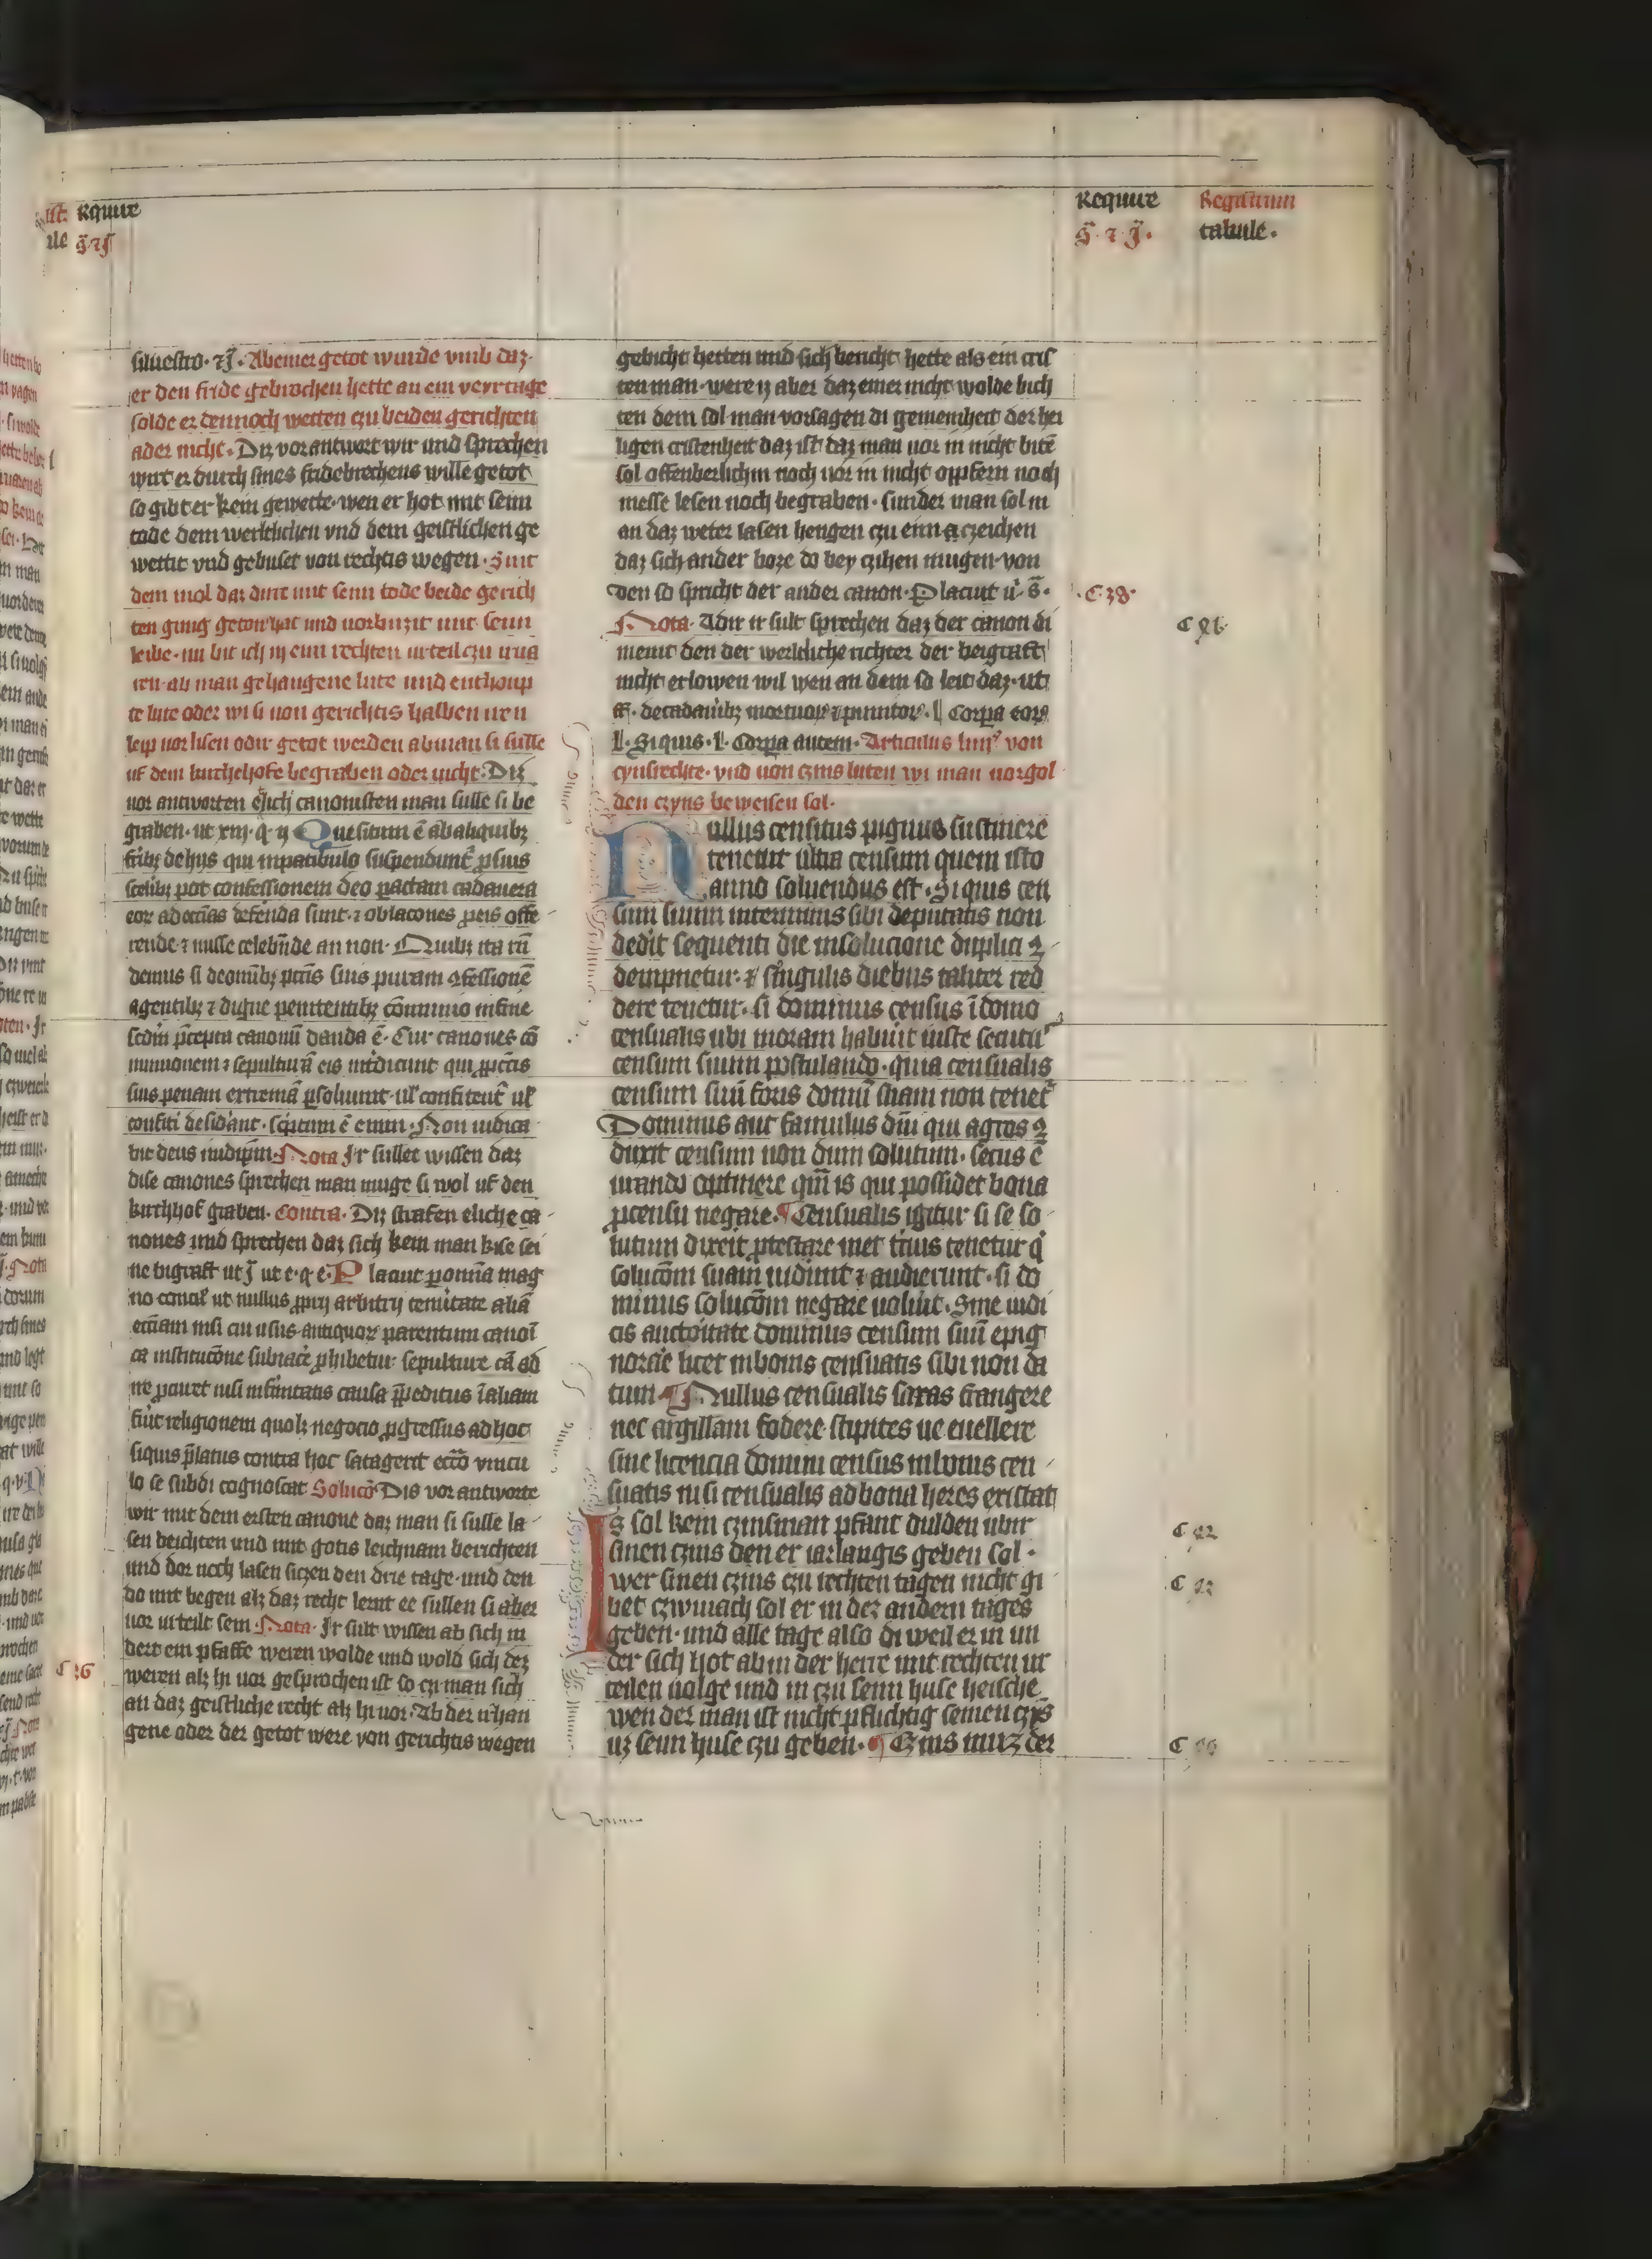 Require
Registrum
tabule.
siluestro. Ab einer getot wurde vmb daz.
er den fride gebrochen hette an eim veyrtage
solde er dennoch wetten czu beiden gerichten
ader nicht. Diz vorantwert wir und sprechen
wirt er durch sines fridebrechens wille getot
so gibt er kein gewette. wen er hot mit seim
tode dem werltlichen vnd dem geistlichen ge
wettit vnd gebuset von rechtis wegen. Sint
dem mol daz dirre mit seim tode beide gerich
ten gnug geton hat und uorbuzit mit seim
leibe. nu bit ich in eim rechten urteil czu
ren. ab man gehangene lute und enthoup
te lute oder wi si uon gerichtis halben iren
leip uorlisen odir getot werden ab man si sulle
uf dem kirchehofe begraben oder nicht. Diz
uor antworten elich canonisten man sulle si be
graben. ut xiij. q. ij Quesitum ē ab aliquibz
fribz de hijs qui in patibulo suspendunt̄ p̱ suis
scelibz pot confessionem deo pactam cadauera
eoꝝ ad eccias defenda sunt. ⁊ oblacones p̱ eis offe
rende ⁊ misse celebn̄de an non. Quibz ita rn̄
demus si deom̄ibz pctīs suis puram ꝯfessionē
agentibz ⁊ digne penitentibz cōmunio in fine
scdm p̄cepta canonū danda ē. Cur canones cō
munionem ⁊ sepulturā eis int̄dicunt qui p̱ pctīs
suis penam extremā p̱soluunt. ul confitent̄ ul
confiti desid̄ant. sc̄ptum ē enim. Non iudica
bit deus in idip̄m. Nota Ir sullet wissen daz
dise canones sprechen man muge si wol uf den
kirchhof graben. Contra. Diz strafen eliche ca
nones und sprechen daz sich kein man kise sei
ne bigraft ut ut e. q. e. Placuit p̱ omnia mag
no concil ut nullus p̱prij arbitrij temitate aliā
siquis p̄latus contra hoc satagerit eccō vincu
lo se subdi cognoscat Solucō Dis vor antworte
wir mit dem ersten canone daz man si sulle la
sen beichten und mit gotis leichnam berichten
und dor noch lasen siczen den drie tage. und den
do mit begen alz daz recht lernt ee sullen si aber
uor urteilt sein. Nota. Ir sult wissen ab sich in
dert ein pfaffe weren wolde und wold sich dez
weren alz hi uor gesprochen ist so czu man sich
an daz geistliche recht alz hi uor. Ab der irhan
gene oder der getot were von gerichtis wegen
gebicht hetten und sich bericht hette als ein cris
ten man. were iz aber daz einer nicht wolde bich
ten dem sol man vorsagen di gemeinheit der hei
ligen cristenheit daz ist daz man uor in nicht bitē
sol offenberlichin noch uor in nicht oppfern noch
messe lesen noch begraben. sunder man sol in
an daz weter lasen hengen czu eim a czeichen
daz sich ander boze do bey czihen mugen. von
den so spricht der ander canon. Placuit u. s.
Nota. Adir ir sult sprechen daz der canon di
meint den der werltliche richter der beigraft
nicht erlowen wil wen an dem so leit daz. ut
l. Siquis. l. Corpa autem. Articulus von
cynsrechte. vnd uon czins luten wi man uorgol
den czyns beweisen sol.
Nullus censitus pignus sustinere
tenetur ultra censum quem isto
anno soluendus est. Siquis cen
sum suum in terminis sibi deputatis non
dedit sequenti die in solucione duplici ꝯ
dempnetur. ⁊ singulis diebus taliter red
dere tenetur. si dominus census ī domo
censualis ubi moram habuit iuste secutu
censum suum postulando. quia censualis
censum suū foris domū suam non tenet̄
Dominus aut famulus dīn qui agros ꝯ
duxit censum non dum solutum. secus ē
iurando optinere qm̄ is qui possidet bona
p̱ censu negare. ¶ Censualis igitur si se so
lutum dixerit p̱testare met tcius tenetur q
solucōm suam uidiunt ⁊ audierunt. si do
minus solucōm negare uoluit. Sine iudi
cis auctoritate dominus censum suū epig
norare licet in bonis censuatis sibi non da
tum ¶ Nullus censualis saxas frangere
nec argillam fodere stipites ue euellere
sine licencia domini census in bonis cen
suatis nisi censualis ad bona heres existat
Is sol kein czinsman pfant dulden ubir
sinen czins den er iarlangis geben sol.
wer sinen czins czu rechten tagen nicht gi
bet czwiuach sol er in dez andern tages
geben. und alle tage also di weil er in un
der sich hot ab in der herre mit rechten ur
teilen uolge und in czu seim huse heische
wen der man ist nicht pflichtig seinen czīs
uz seim huse czu geben. ¶ Czins muz der